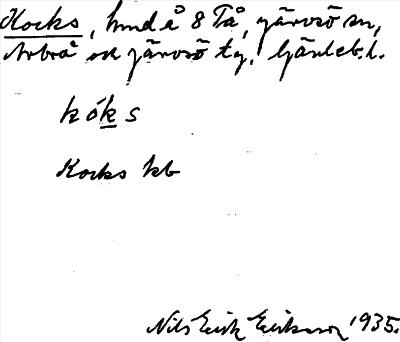 Kocks, hmd å 8 Tå, Järvsö sn,
Arbrå och Järvsö tg, Gävleb. l.
kóks
Kocks kb
Nils Erik Eriksson 1935.